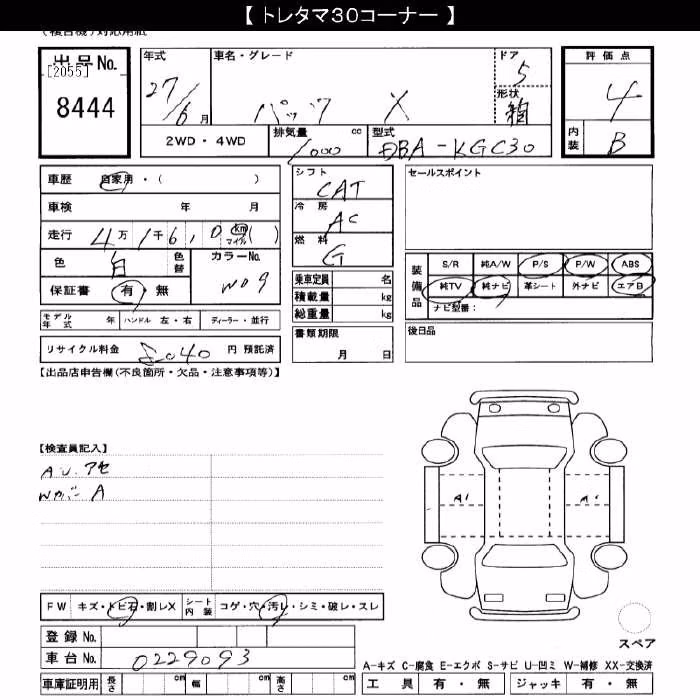 【 トレタマ30コーナー 】
出品No.
[2055]
8444
年式
27/6月
車名・グレード
パッソ X
ドア
5
形状
箱
評価点
4
内装
B
2WD・4WD
排気量 cc
1000
型式
DBA-KGC30
車歴 自家用・( )
車検 年 月
走行 4万1千6,0 km マイル ( )
色 白 色替
カラーNo.
W09
保証書 有・無
モデル年式 年 ハンドル 左・右 ディーラー・並行
リサイクル料金 8040 円 預託済
シフト
CAT
冷房
AC
燃料
G
乗車定員 名
積載量 kg
総重量 kg
書類期限
月 日
セールスポイント
装備品
S/R 純A/W P/S P/W ABS
純TV 純ナビ 革シート 外ナビ エアB
ナビ型番:
後日品
【出品店申告欄(不良箇所・欠品・注意事項等)】
【検査員記入】
A.U.アセ
Wカバー A
A1 A1
FW キズ・トビ石・割レX シート内装 コゲ・穴・汚レ・シミ・破レ・スレ
登録No.
車台No. 0229093
車庫証明用 長さ cm 幅 cm 高さ cm
スペア
A-キズ C-腐食 E-エクボ S-サビ U-凹ミ W-補修 XX-交換済
工具 有・無 ジャッキ 有・無